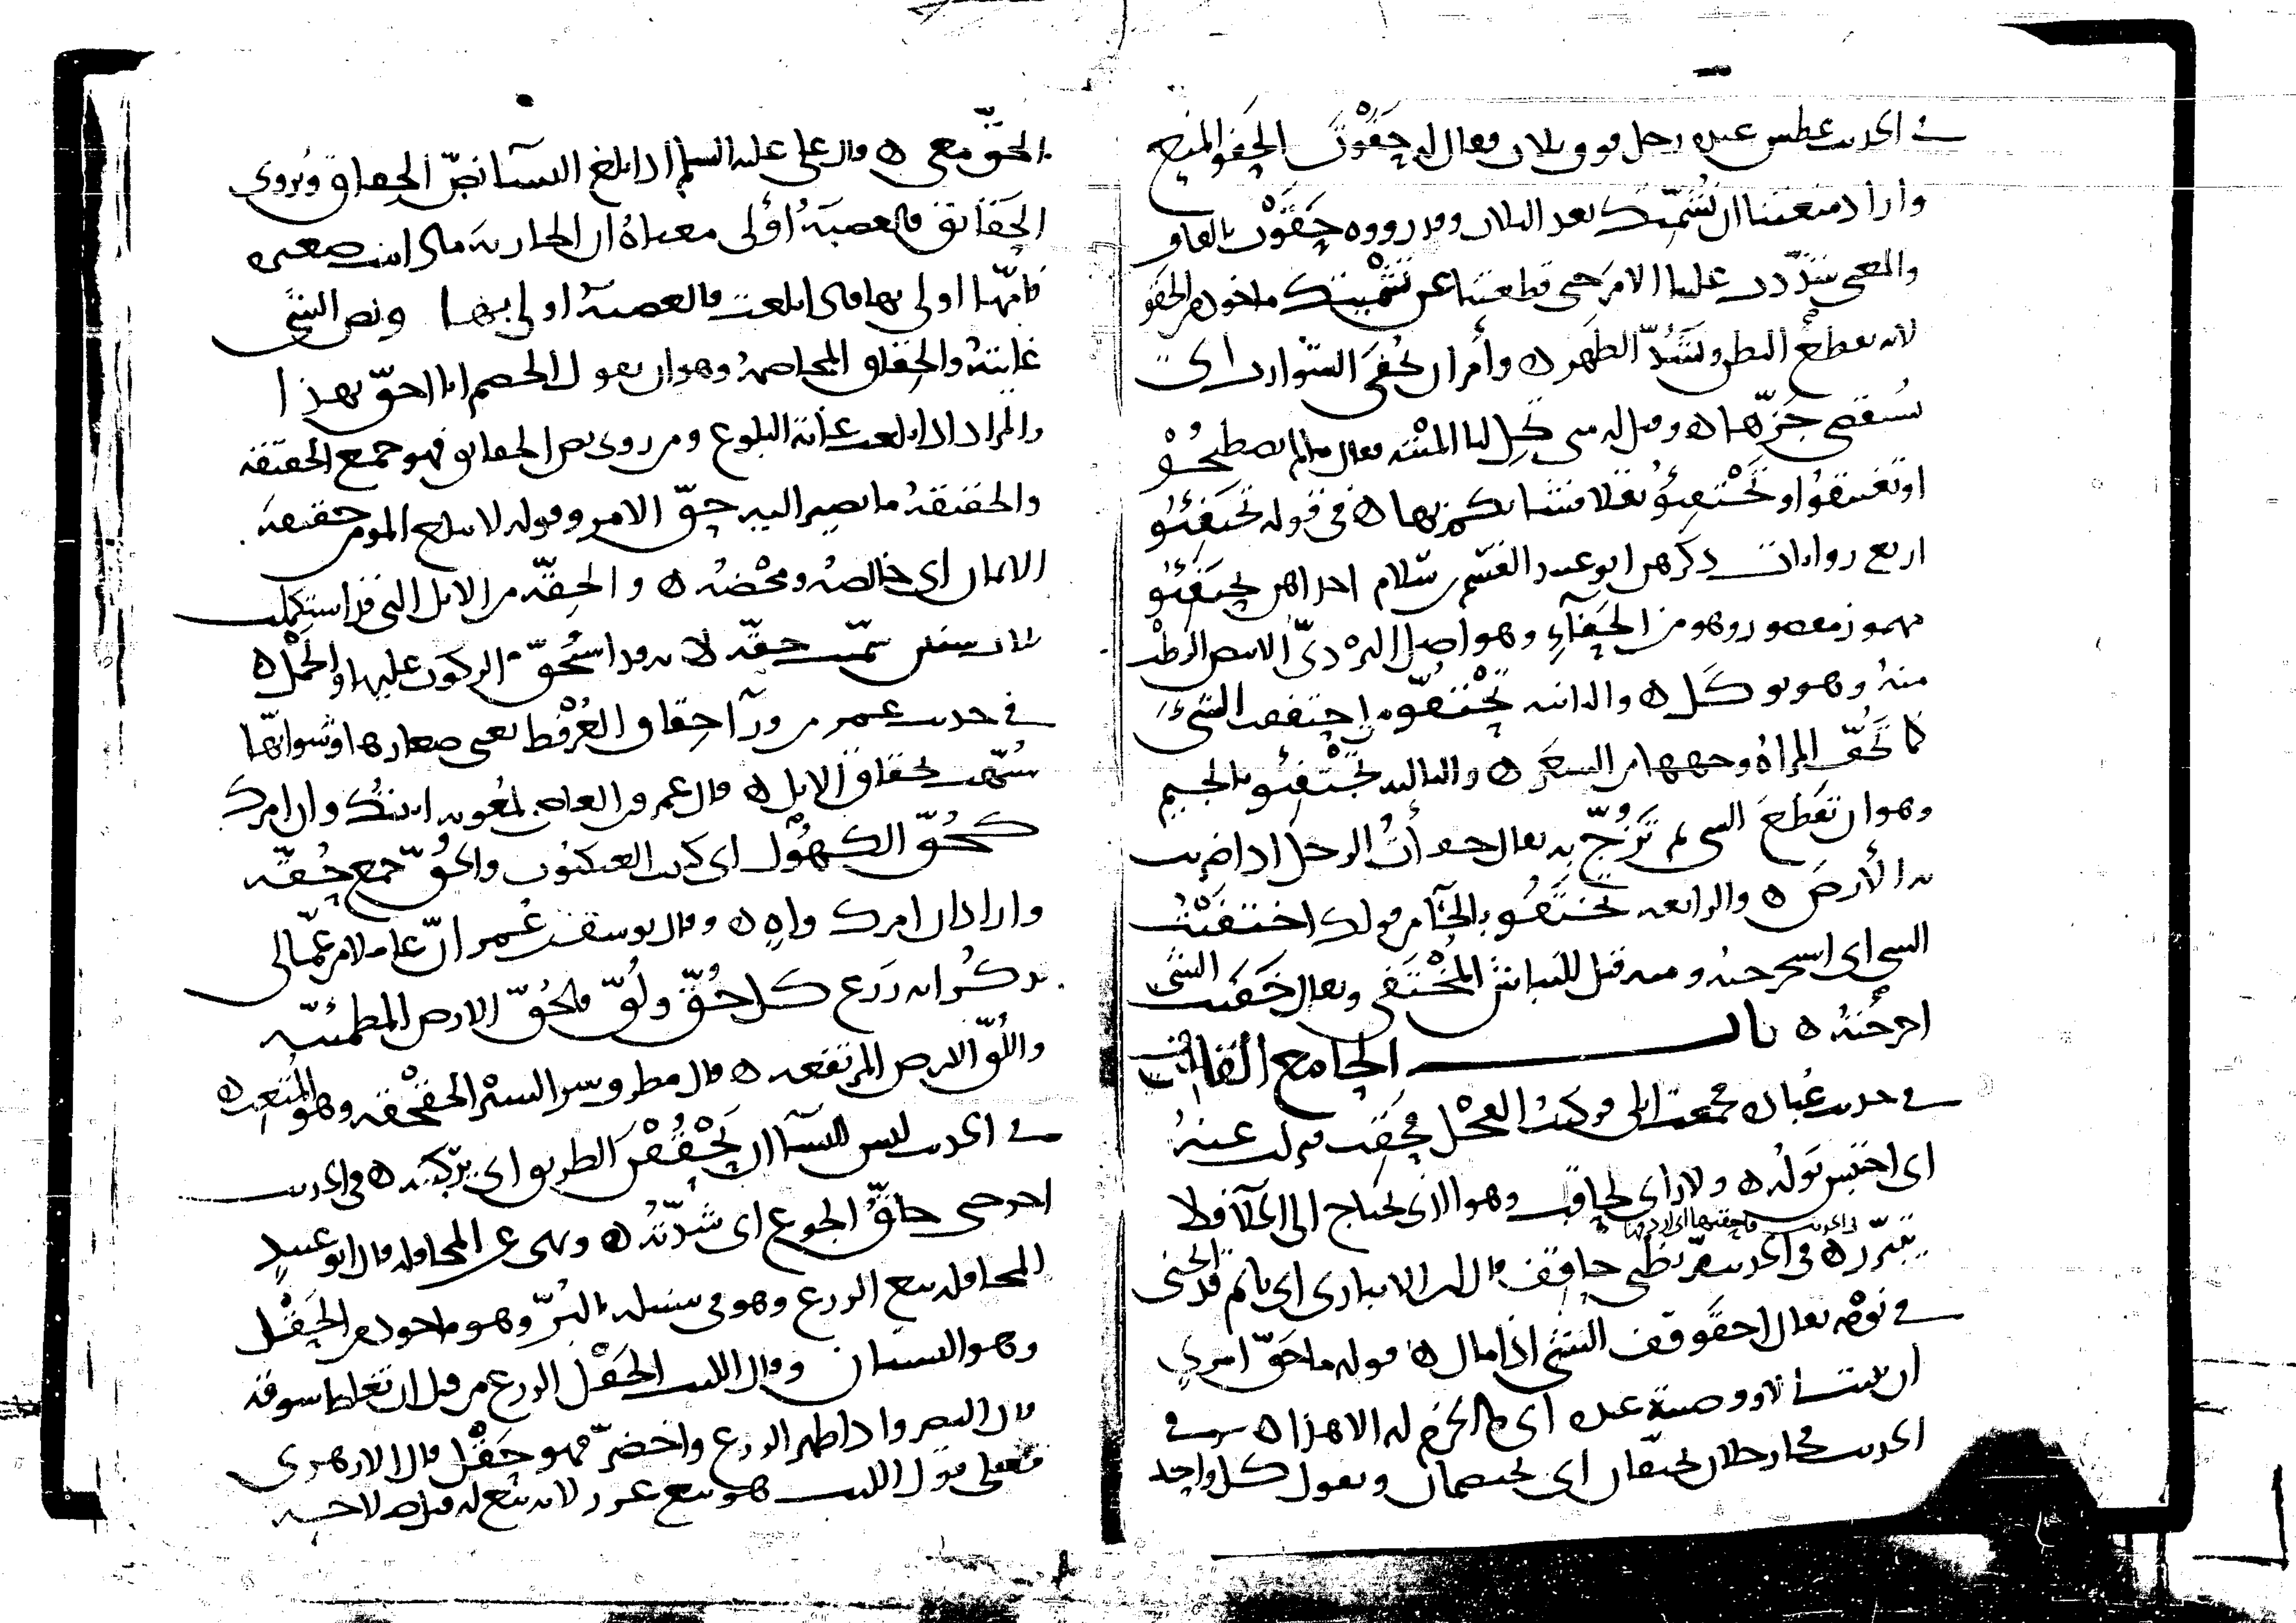 في الحديث عطس عنده رجل فوق ثلاث فقال له حَفَوْتَ الحَفْو المنع
وأراد منعتنا أن نُشَمِّتك بعد الثلاث وقد رووه حَقَوْتَ بالقاف
والمعنى شدّدت علينا الامر حتى قطعتنا عن تشميتك ماخوذ من الحَقو
لانه يقطع البطن ويشدّ الظهر ه وأمر أن تُحفى الشوارب اي
يُستقصى جَزّها ه وقيل له متى تحِلّ لنا الميتة فقال ما لم تصطبحُوْا
او تغتبقوُا او تَحْتفِئوُا بقلا فشأنكم بها ه في قوله تحتفِئوا
اربع روايات ذكرهن ابو عبيد القسم بن سلام احداهن تحتَفِئوا
مهموز مقصور وهو من الحَفَاءِ وهو اصل البرْديّ الابيض الرطْب
منهُ وهو يوكَل ه والثانية تَحْتفّوا من احتففت الشيءَ
كما تَحُفّ المراةُ وجهها من الشعَر ه والثالثة تَجْتفِئوا بالجيم
وهو ان تقطعَ الشي ثم تَزُجّ به يقال جفأتُ الرجل اذا ضربت
به الأرضَ ه والرابعة تختَفُوا بالخاء من قولك اختفَيْتُ
الشي اي استخرجته ومنه قيل للنباش المُخْتَفي ويقال خَفَيت الشي
اخرجتُه ه باب الحا مع القاف
في حديث عُبادة فجمعت ابلي وركبتُ الفحْل فحَقِب فنزلت عنهُ
اي احتبس بَولُه ه ولا راي لحاقب وهو الذي يحتاج الى الخلا فلا
في الحديث فاحقبها اي اردفها
يتبرّزه في الحديث مرّ بظبي حاقِف قال ابن الانباري اي نائم قد انحنى
في نومه يقال احقَوقف الشي اذا مال ه قوله ما حَقّ امرئٍ
ان يبيت الا ووصيّته عنده اي ما الحزم له الا هذا ه في
الحديث فجا رجلان يحتقّان اي يختصمان ويقول كل واحد
الحقّ معي ه قال علي عليه السلم اذا بلغ النسآ نصّ الحِقاق ويُروى
الحَقَائق فالعصبَةُ أوْلى معناهُ ان الجارية ما دامت صغيرة
فامّها اولى بها فاذا بلغت فالعصبةُ اولى بها ونص الشي
غايتهُ والحِقاق المخاصمةُ وهو ان يقول الخصم انا احقّ بهذا
والمراد اذا بلغت غاية البلوغ ومن روى نص الحقائق فهو جمع الحقيقة
والحقيقةُ ما يصير اليه حقّ الامر وقوله لا يبلغ المومن حقيقة
الايمان اي خالصهُ ومحْضهُ ه والحِقّة من الابل التي قد استكملت
ثلاث سنين سمّيت حِقّة لانه قد استُحِقّ الركوب عليها والحَمْل ه
في حديث عمر من ورآ حِقاق العُرْفُط يعني صغارها وشوابّها
شُبّهت بحقاق الابل ه قال عمرو بن العاص لمعوية اتيتك وان امرك
كحُقّ الكَهُوْل اي كبيت العنكبوت والحُقّ جمع حُقّة
واراد ان امرك واهٍ ه وقال يوسف بن عُمر انّ عاملا من عمّالي
يذكُر انه زرَع كل حُقٍّ ولُقّ فالحُقّ الارض المطمئنّة
واللُّقّ الارض المرتفعة ه قال مطرف وشر السيْر الحَقْحَقة وهو المُتعِب ه
في الحديث ليس للنسآ ان يَحْقُقْنَ الطريق اي يركبْنه ه في الحديث
اخرجني حاقُّ الجوع اي شدّتُه ه ونهى عن المحاقلة قال ابو عبيدٍ
المحاقلة بيع الزرع وهو في سنبله بالبُرّ وهو ماخوذ من الحَقْل
وهو البستان وقال الليث الحَقْل الزرع من قبل ان تغلظ سوقه
قال النضر واذا ظهر الزرع واخضرّ فهو حَقْل قال الازهري
فعلى قول الليث هو بيع غرر لانه بيع له قبل صلاحه